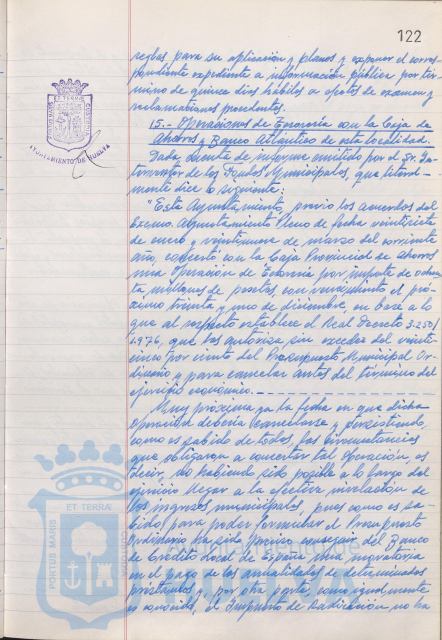 122
reglas para su aplicación y planos y exponer el corres
pondiente expediente a información pública por tér
mino de quince días hábiles a efectos de examen y
reclamaciones procedentes.
15.- Operaciones de Tesorería con la Caja de
Ahorros y Banco Atlántico de esta localidad.
Dada cuenta de informe emitido por el Sr. In-
terventor de los Fondos Municipales, que literal-
mente dice lo siguiente:
"Este Ayuntamiento, previo los acuerdos del
Excmo. Ayuntamiento Pleno de fecha veintisiete
de enero y veintinueve de marzo del corriente
año, concertó con la Caja Provincial de Ahorros
una Operación de Tesorería por importe de ochen
ta millones de pesetas, con vencimiento el pró
ximo treinta y uno de diciembre, en base a lo
que al respecto establece el Real Decreto 3.250/
1.976, que las autoriza sin exceder del veinti-
cinco por ciento del Presupuesto Municipal Or-
dinario y para cancelar antes del término del
ejercicio económico.
Muy próxima ya la fecha en que dicha
operación debería cancelarse y persistiendo,
como es sabido de todos, las circunstancias
que obligaron a concertar tal operación, es
decir, no habiendo sido posible a lo largo del
ejercicio llegar a la efectiva nivelación de
los ingresos municipales, pues como es sa-
bido, para poder formular el Presupuesto
Ordinario ha sido preciso conseguir del Banco
de Crédito Local de España una moratoria
en el pago de las anualidades de determinados
préstamos y, por otra parte, como igualmente
es conocido, el Impuesto de Radicación no ha
AYUNTAMIENTO DE HUELVA
PORTUS MARIS
ET TERRAE
CUSTODIA
PORTUS MARIS
ET TERRAE
CUSTODIA
Ayuntamiento de